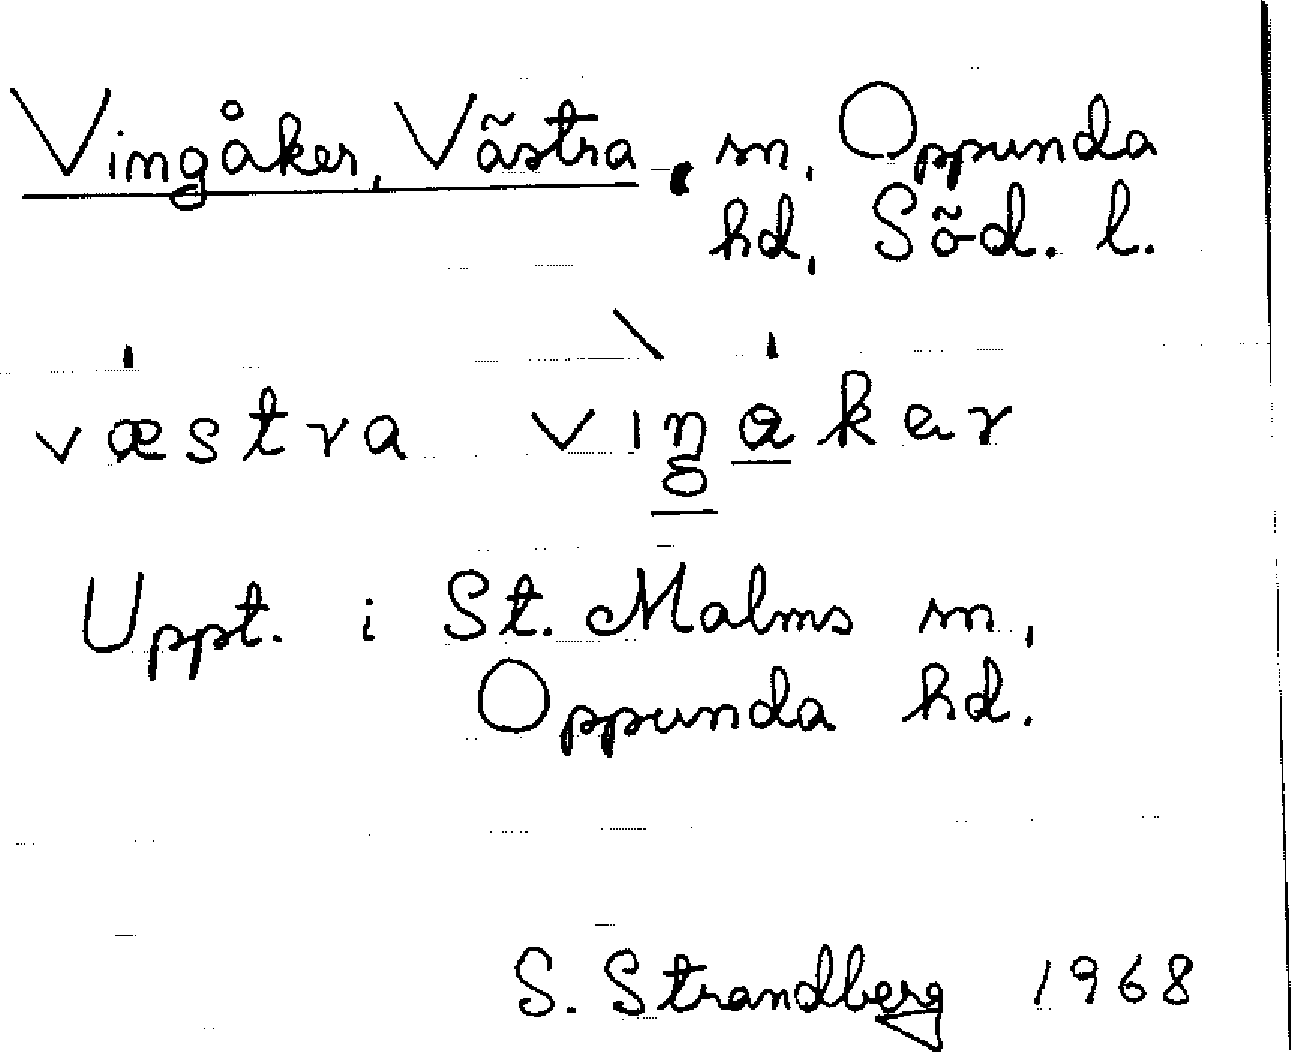 Vingåker, Västra, sn, Oppunda
hd, Söd. l.
væstra viŋakær
Uppt. i St. Malms sn,
Oppunda hd.
S. Strandberg 1968